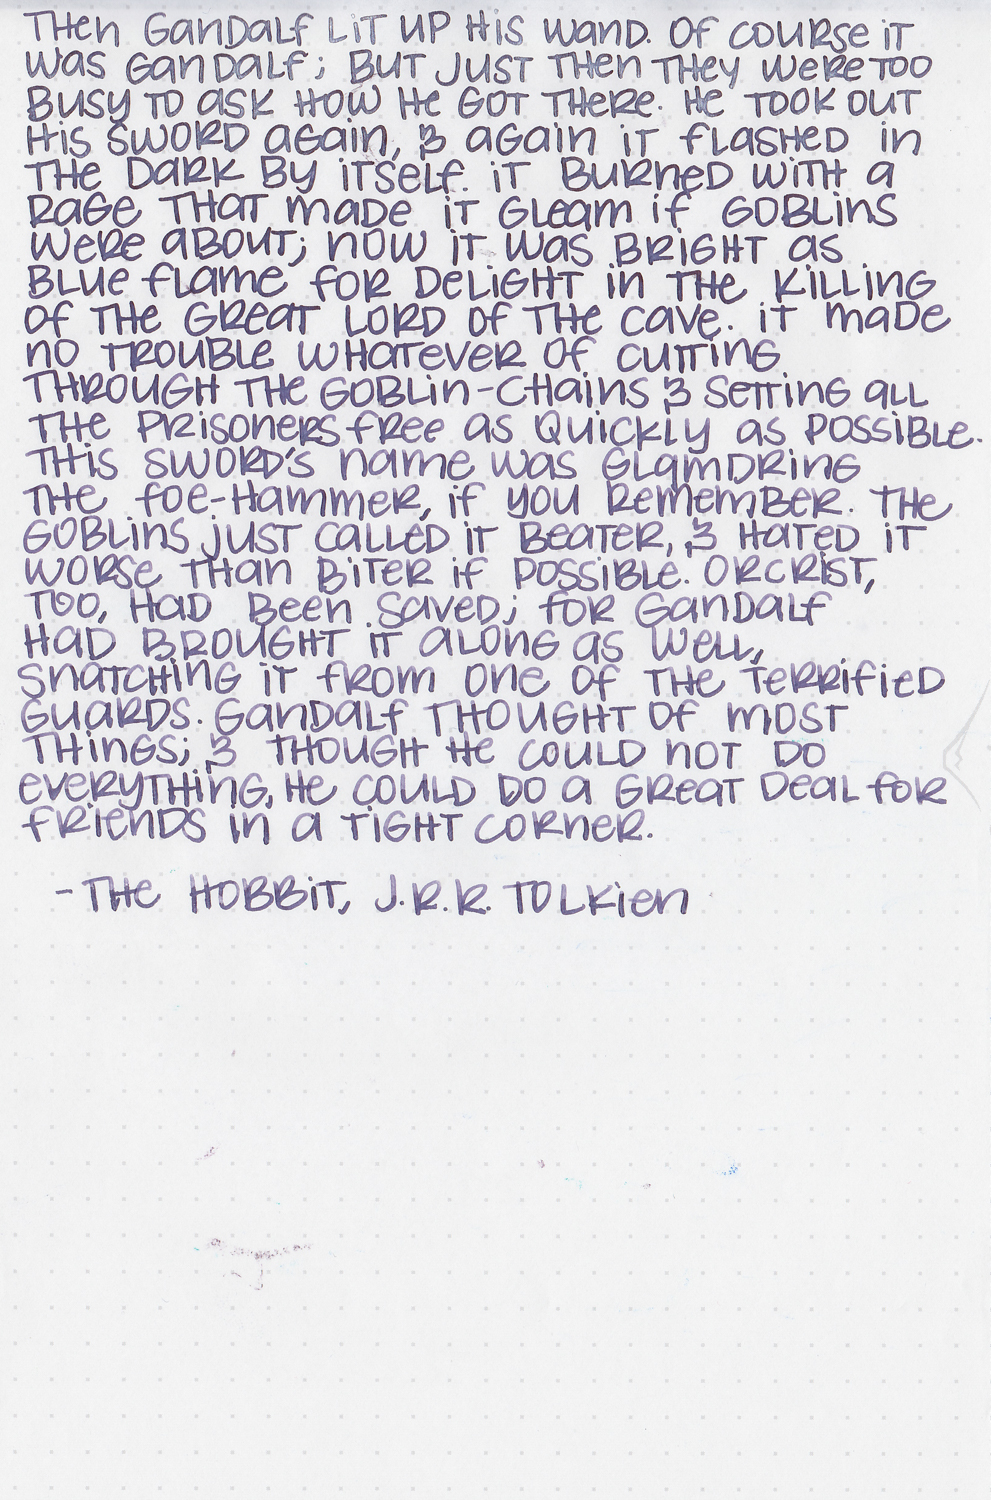 Then Gandalf lit up his wand. Of course it
was Gandalf; but just then they were too
busy to ask how he got there. He took out
his sword again, & again it flashed in
the dark by itself. It burned with a
rage that made it gleam if goblins
were about; now it was bright as
blue flame for delight in the killing
of the great lord of the cave. It made
no trouble whatever of cutting
through the goblin-chains & setting all
the prisoners free as quickly as possible.
This sword's name was Glamdring
the Foe-Hammer, if you remember. The
goblins just called it Beater, & hated it
worse than Biter if possible. Orcrist,
too, had been saved; for Gandalf
had brought it along as well,
snatching it from one of the terrified
guards. Gandalf thought of most
things; & though he could not do
everything, he could do a great deal for
friends in a tight corner.
- The Hobbit, J.R.R. Tolkien